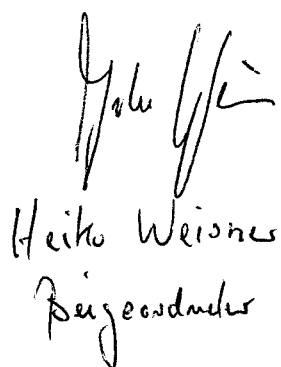 Heiko Weisner
Beigeordneter